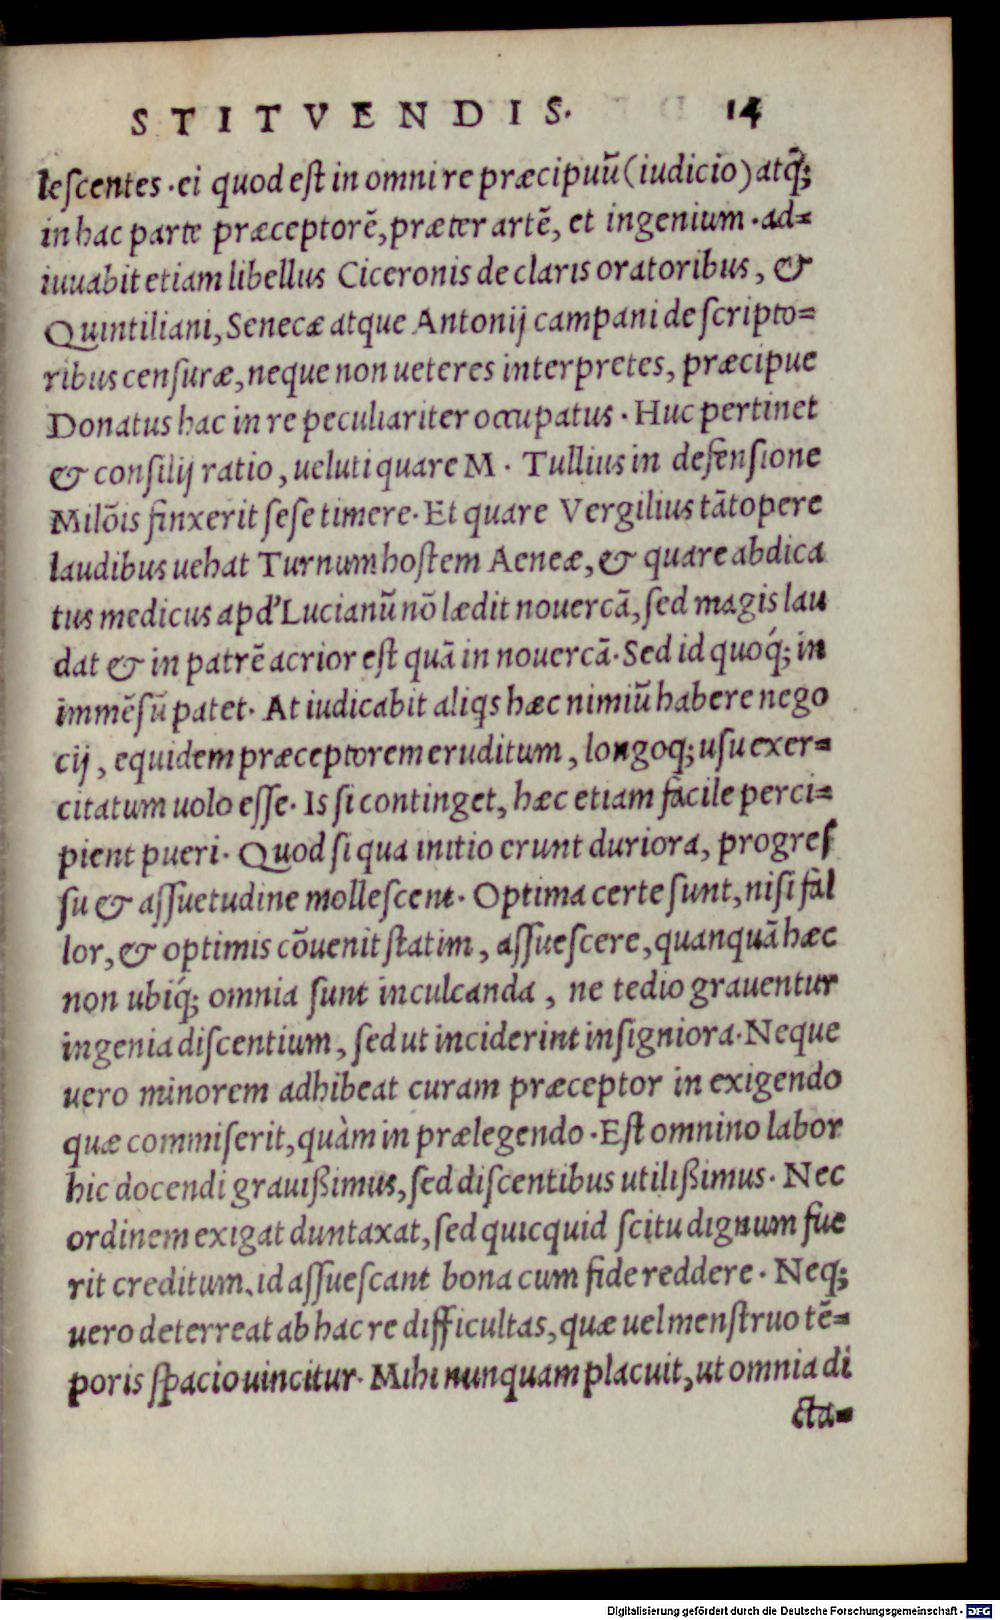 STITVENDIS. 14
lescentes.ei quod est in omni re præcipuũ(iudicio)atq̃;
in hac parte præceptorẽ,præter artẽ, et ingenium.ad=
iuuabit etiam libellus Ciceronis de claris oratoribus, &
Quintiliani, Senecæ atque Antonij campani de scripto=
ribus censuræ, neque non ueteres interpretes, præcipue
Donatus hac in re peculiariter occupatus. Huc pertinet
& consilij ratio, ueluti quare M. Tullius in defensione
Milõis finxerit sese timere. Et quare Vergilius tãtopere
laudibus uehat Turnum hostem Aeneæ, & quare abdica
tus medicus apd' Lucianũ nõ lædit nouercã, sed magis lau
dat & in patrẽ acrior est quã in nouercã. Sed id quoq́; in
immẽsũ patet. At iudicabit aliqs hæc nimiũ habere nego
cij, equidem præceptorem eruditum, longoq; usu exer=
citatum uolo esse. Is si continget, hæc etiam facile perci=
pient pueri. Quod si qua initio erunt duriora, progres
su & assuetudine mollescent. Optima certe sunt, nisi fal
lor, & optimis cõuenit statim, assuescere, quanquã hæc
non ubiq́; omnia sunt inculcanda, ne tedio grauentur
ingenia discentium, sed ut inciderint insigniora. Neque
uero minorem adhibeat curam præceptor in exigendo
quæ commiserit, quàm in prælegendo. Est omnino labor
hic docendi grauißimus, sed discentibus utilißimus. Nec
ordinem exigat duntaxat, sed quicquid scitu dignum fue
rit creditum, id assuescant bona cum fide reddere. Neq;
uero deterreat ab hac re difficultas, quæ uel menstruo tẽ=
poris spacio uincitur. Mihi nunquam placuit, ut omnia di
cta=
Digitalisierung gefördert durch die Deutsche Forschungsgemeinschaft - DFG